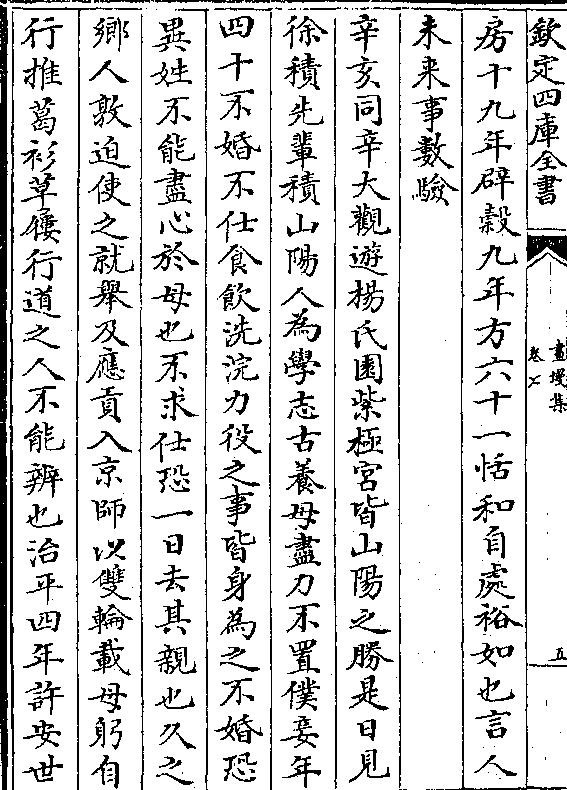 欽定四庫全書
畫墁集
卷七
五
房十九年辟糓九年方六十一恬和自處裕如也言人
未来事數驗
辛亥同辛大觀遊楊氏園紫極宫皆山陽之勝是日見
徐積先輩積山陽人為學志古養母盡力不置僕妾年
四十不婚不仕食飲洗浣力役之事皆身為之不婚恐
異姓不能盡心於母也不求仕恐一日去其親也久之
鄉人敦迫使之就舉及應貢入京師以雙輪載母躬自
行推葛衫草屨行道之人不能辨也治平四年許安世